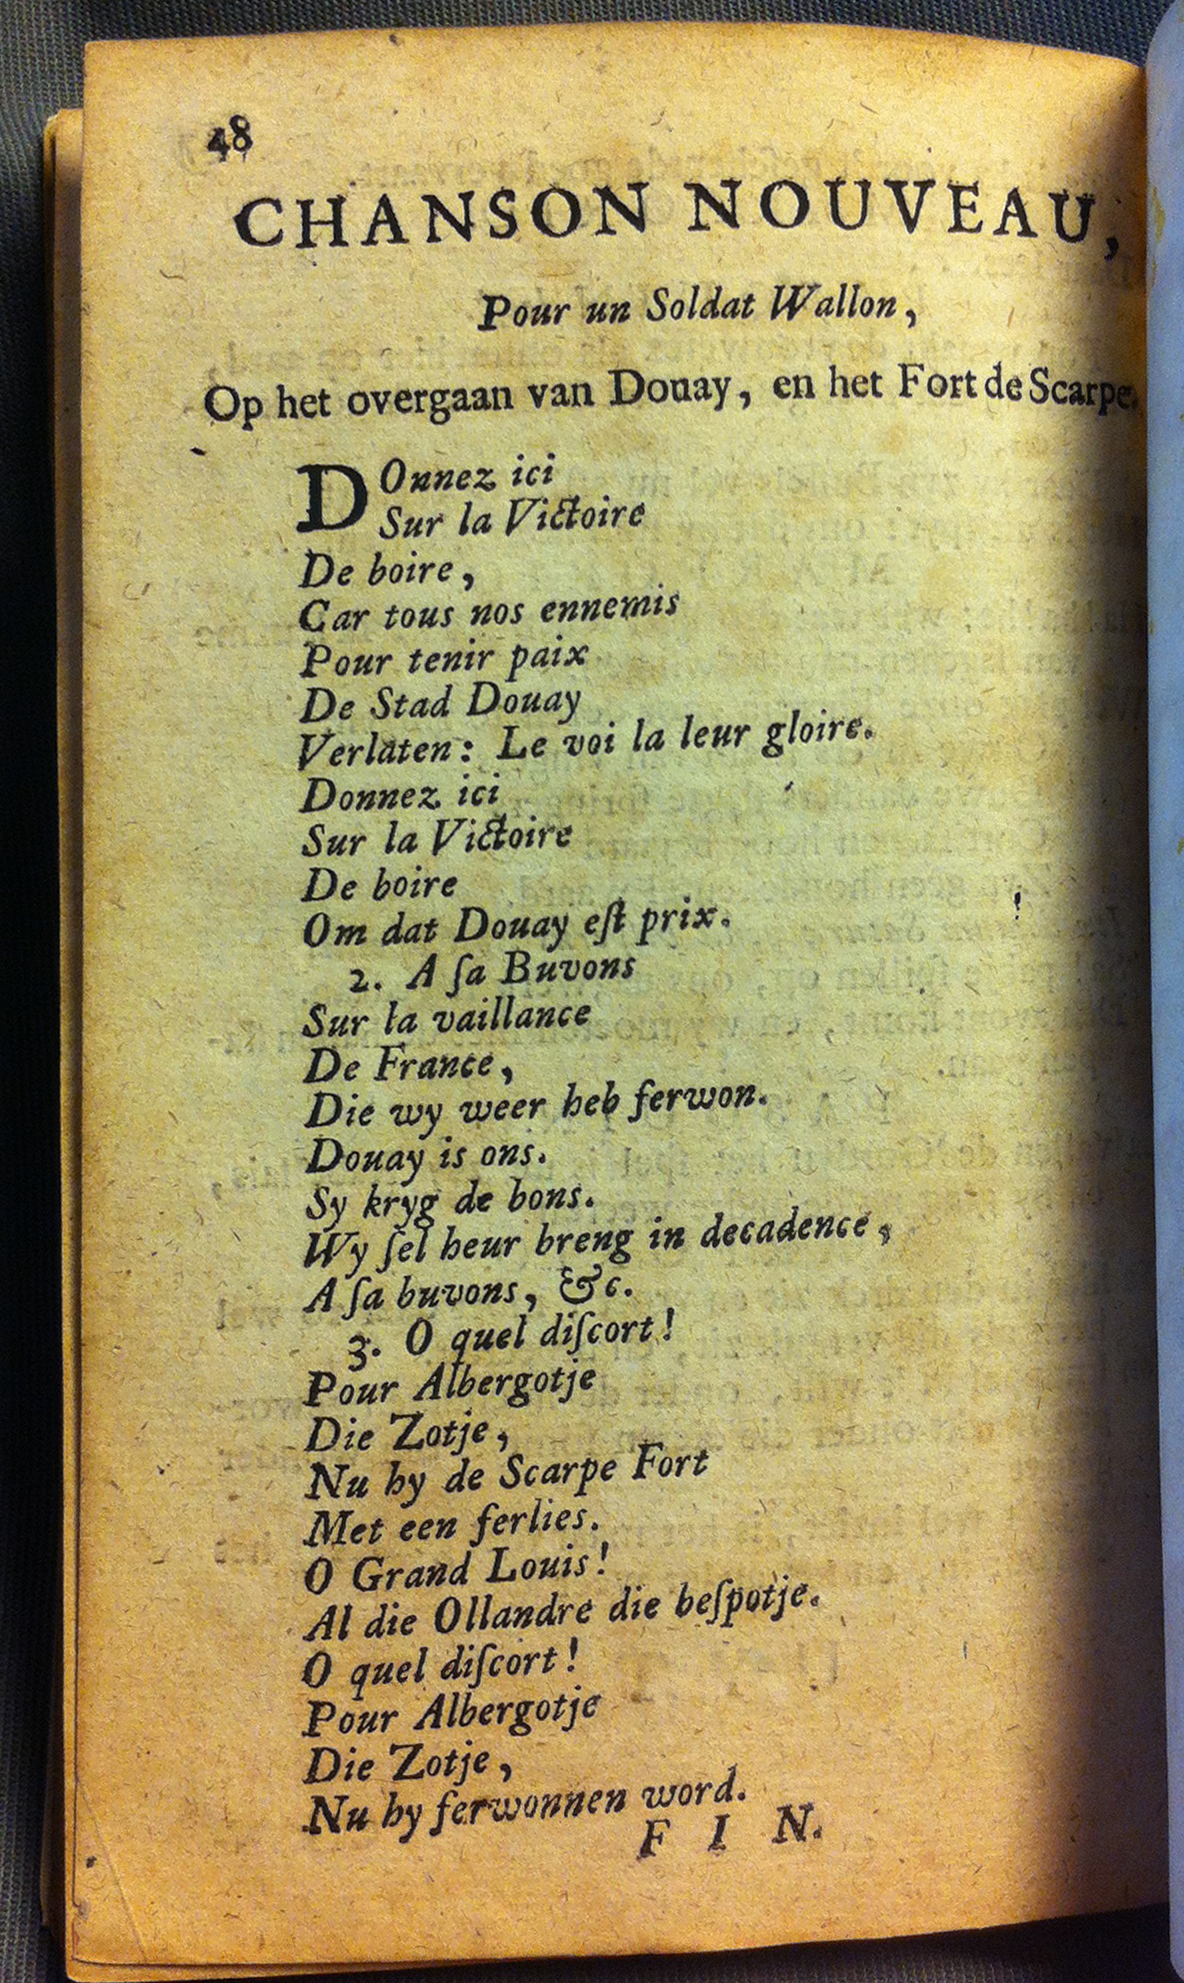 48
CHANSON NOUVEAU,
Pour un Soldat Wallon,
Op het overgaan van Douay, en het Fort de Scarpe.
DOnnez ici
Sur la Victoire
De boire,
Car tous nos ennemis
Pour tenir paix
De Stad Douay
Verlaten: Le voi la leur gloire.
Donnez ici
Sur la Victoire
De boire
Om dat Douay eſt prix.
2. A ſa Buvons
Sur la vaillance
De France,
Die wy weer heb ferwon.
Douay is ons.
Sy kryg de bons.
Wy ſel heur breng in decadence,
A ſa buvons, &c.
3. O quel diſcort!
Pour Albergotje
Die Zotje,
Nu hy de Scarpe Fort
Met een ferlies.
O Grand Louis!
Al die Ollandre die beſpotje.
O quel diſcort!
Pour Albergotje
Die Zotje,
Nu hy ferwonnen word.
F I N.